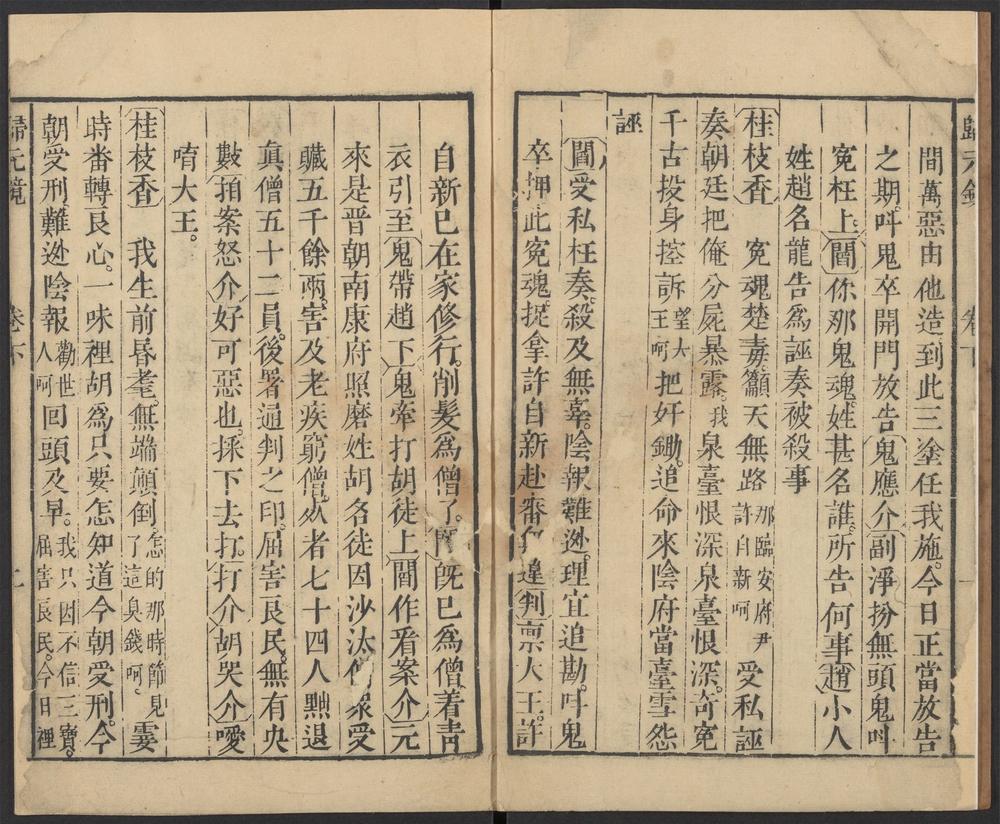 間萬惡由他造到此三塗任我施。今日正當放告
之期。呌鬼卒開門放告鬼應介副淨扮無頭鬼呌
寃枉上。閻你那鬼魂。姓甚名誰。所告何事趙小人
姓趙名龍告爲誣奏被殺事
桂枝香　寃魂楚毒。籲天無路那臨安府尹許自新呵受私誣
奏朝廷把俺分屍暴露。我泉臺恨深泉臺恨深。奇寃
千古投身控訴望大王呵把奸鋤。追命來陰府當臺雪怨
誣
閻受私枉奏。殺及無辜。陰報難逃。理宜追勘。呌鬼
卒押此寃魂。捉拿許自新赴審違判禀大王。許
自新已在家修行。削髮爲僧了。閻旣已爲僧着青
衣引至鬼帶趙下鬼牽打胡徒上閻作看案介元
來是晋朝南康府照磨姓胡名徒因沙汰僧衆受
贓五千餘兩。害及老疾窮僧。死者七十四人黜退
眞僧五十二員。後署通判之印。屈害良民。無有央
數拍案怒介好可惡也。採下去打。打介胡哭介噯
唷大王。
桂枝香　我生前昏耄。無端顚倒。怎的那時節見了這臭錢呵。霎
時番轉良心。一味裡胡爲只要怎知道今朝受刑。今
朝受刑難逃陰報勸世人呵回頭及早。我只因不信三寶。屈害良民。今日裡
歸元鏡　卷下